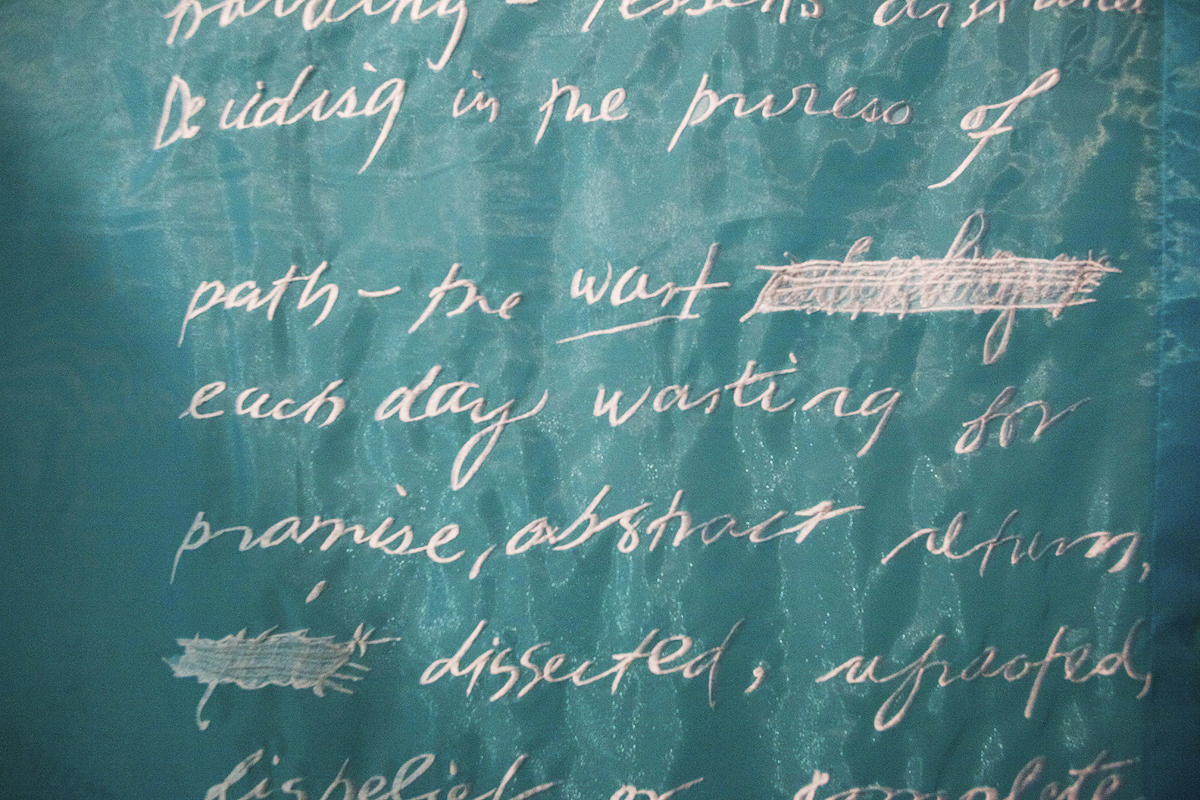 lessens
Deciding in the process of
path – the wast
each day wasting for
promise, abstract return,
dissected,
disbelief or complete